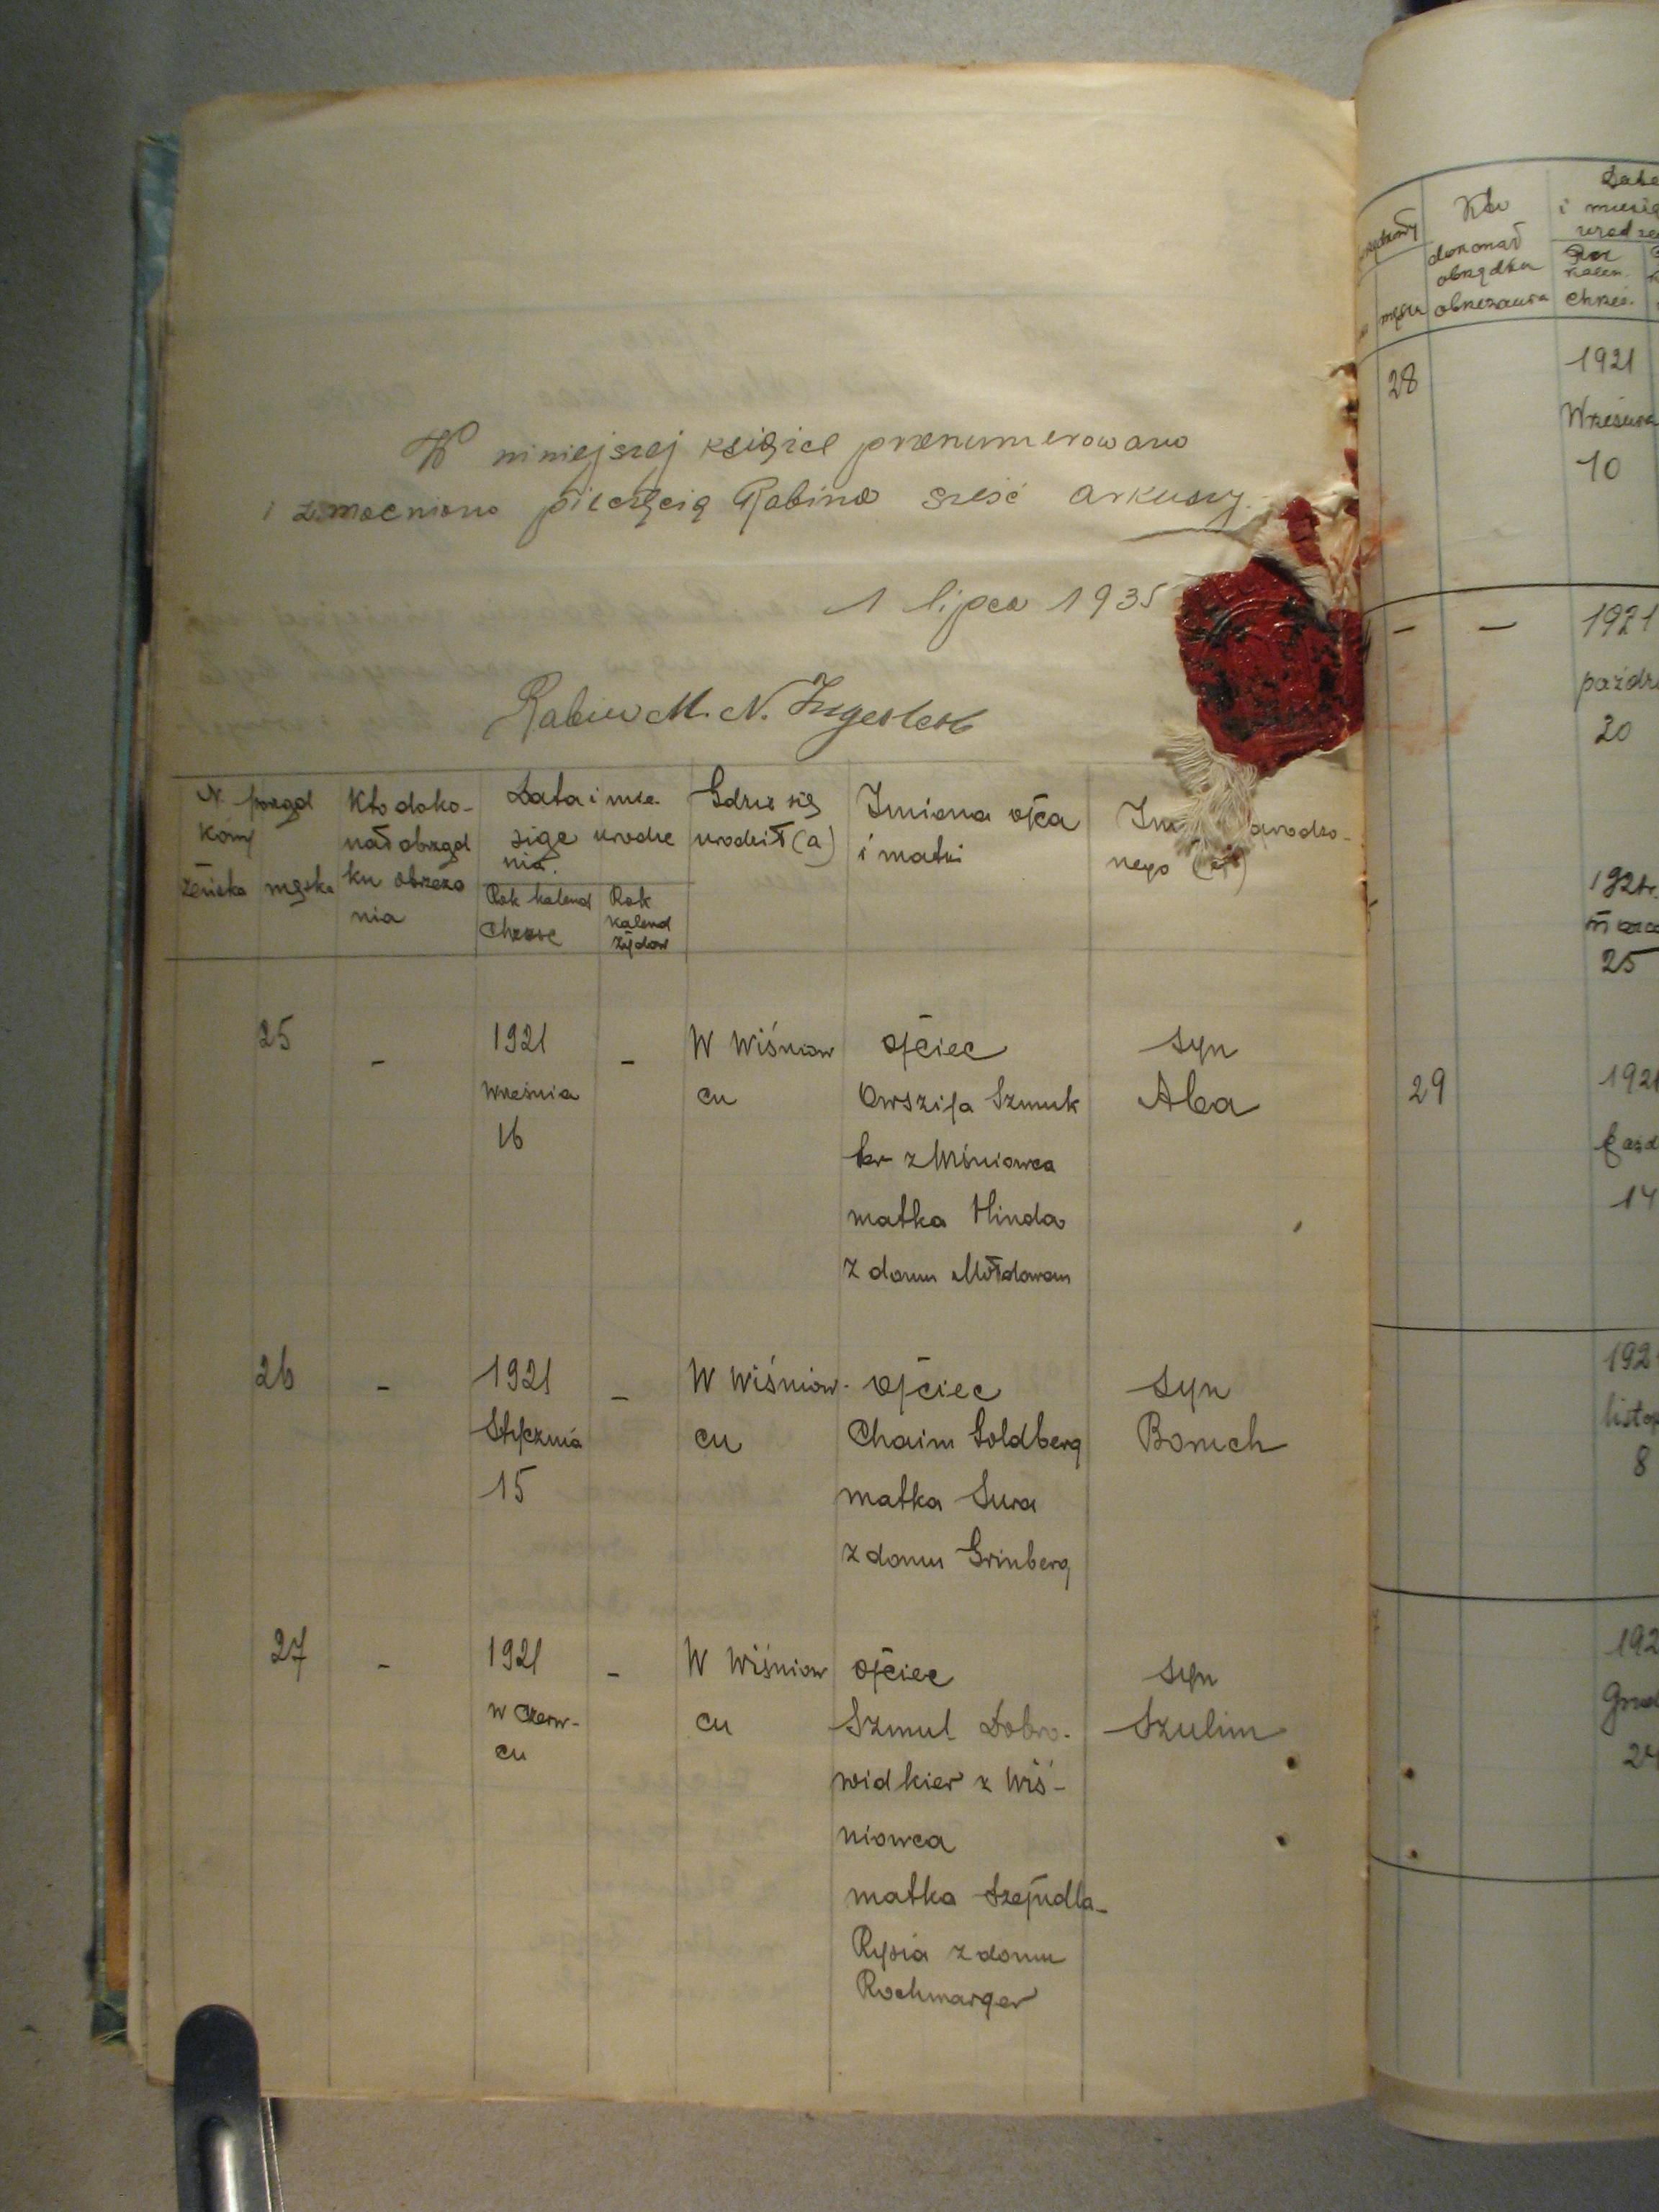 W niniejszej księdze przenumerowano
i zmocniono pieczęcią Rabina sześć arkuszy.
1 lipca 1935
Rabin M. N.
N. porząd
kowy
żeńska męska
Kto doko-
nał obrząd
ku obrzeza
nia
Data i mie
siąc urodze
nia.
Rok kalend
Chrześc
Rok
kalend
żydow
Gdzie się
urodził(a)
Imiona ojca
i matki
nego
25
-
1921
Września
16
-
W Wiśniow
cu
ojciec
Owszija Szmuk
ler z Wiśniowca
matka Hinda
z domu Mołdowan
syn
Aba
26
-
1921
Stycznia
15
-
W Wiśniow-
cu
ojciec
Chaim Goldberg
matka Sura
z domu Grinberg
syn
Boruch
27
-
1921
w Czerw-
cu
-
W Wiśniow
cu
ojciec
Szmul Dobro-
widkier z Wiś-
niowca
matka Szejndla-
Rysia z domu
Rochmarger
syn
Szulim
męska
Kto
dokonał
obrządku
obrzezania
i
Rok
kalen.
chrześ.
28
1921
Września
10
- -
1921
20
25
29
14
8